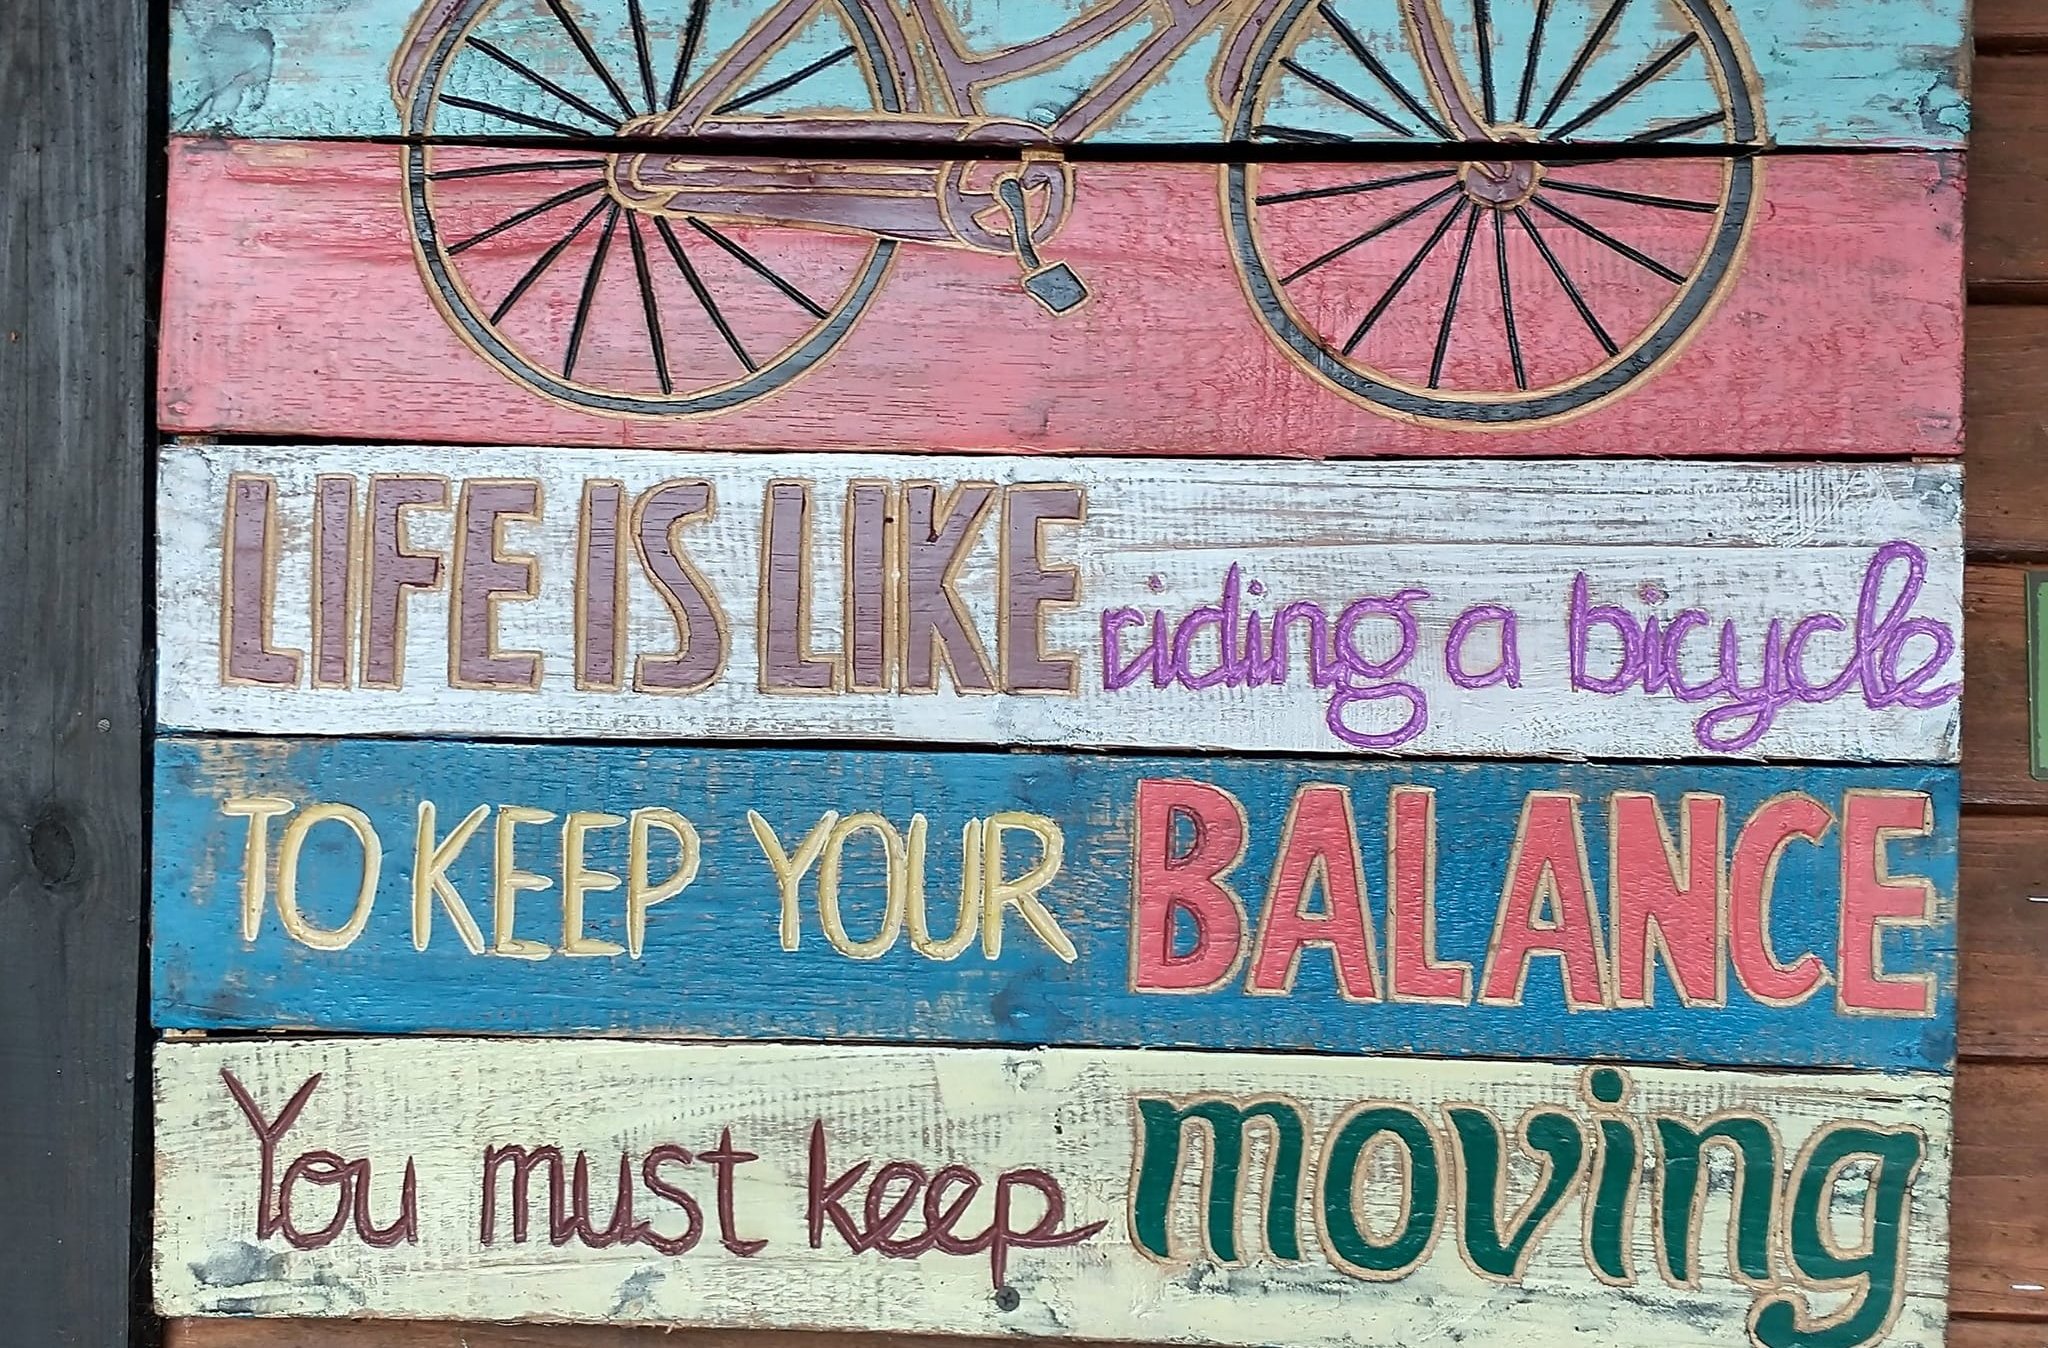 LIFE IS LIKE riding a bicycle
TO KEEP YOUR BALANCE
You must keep moving